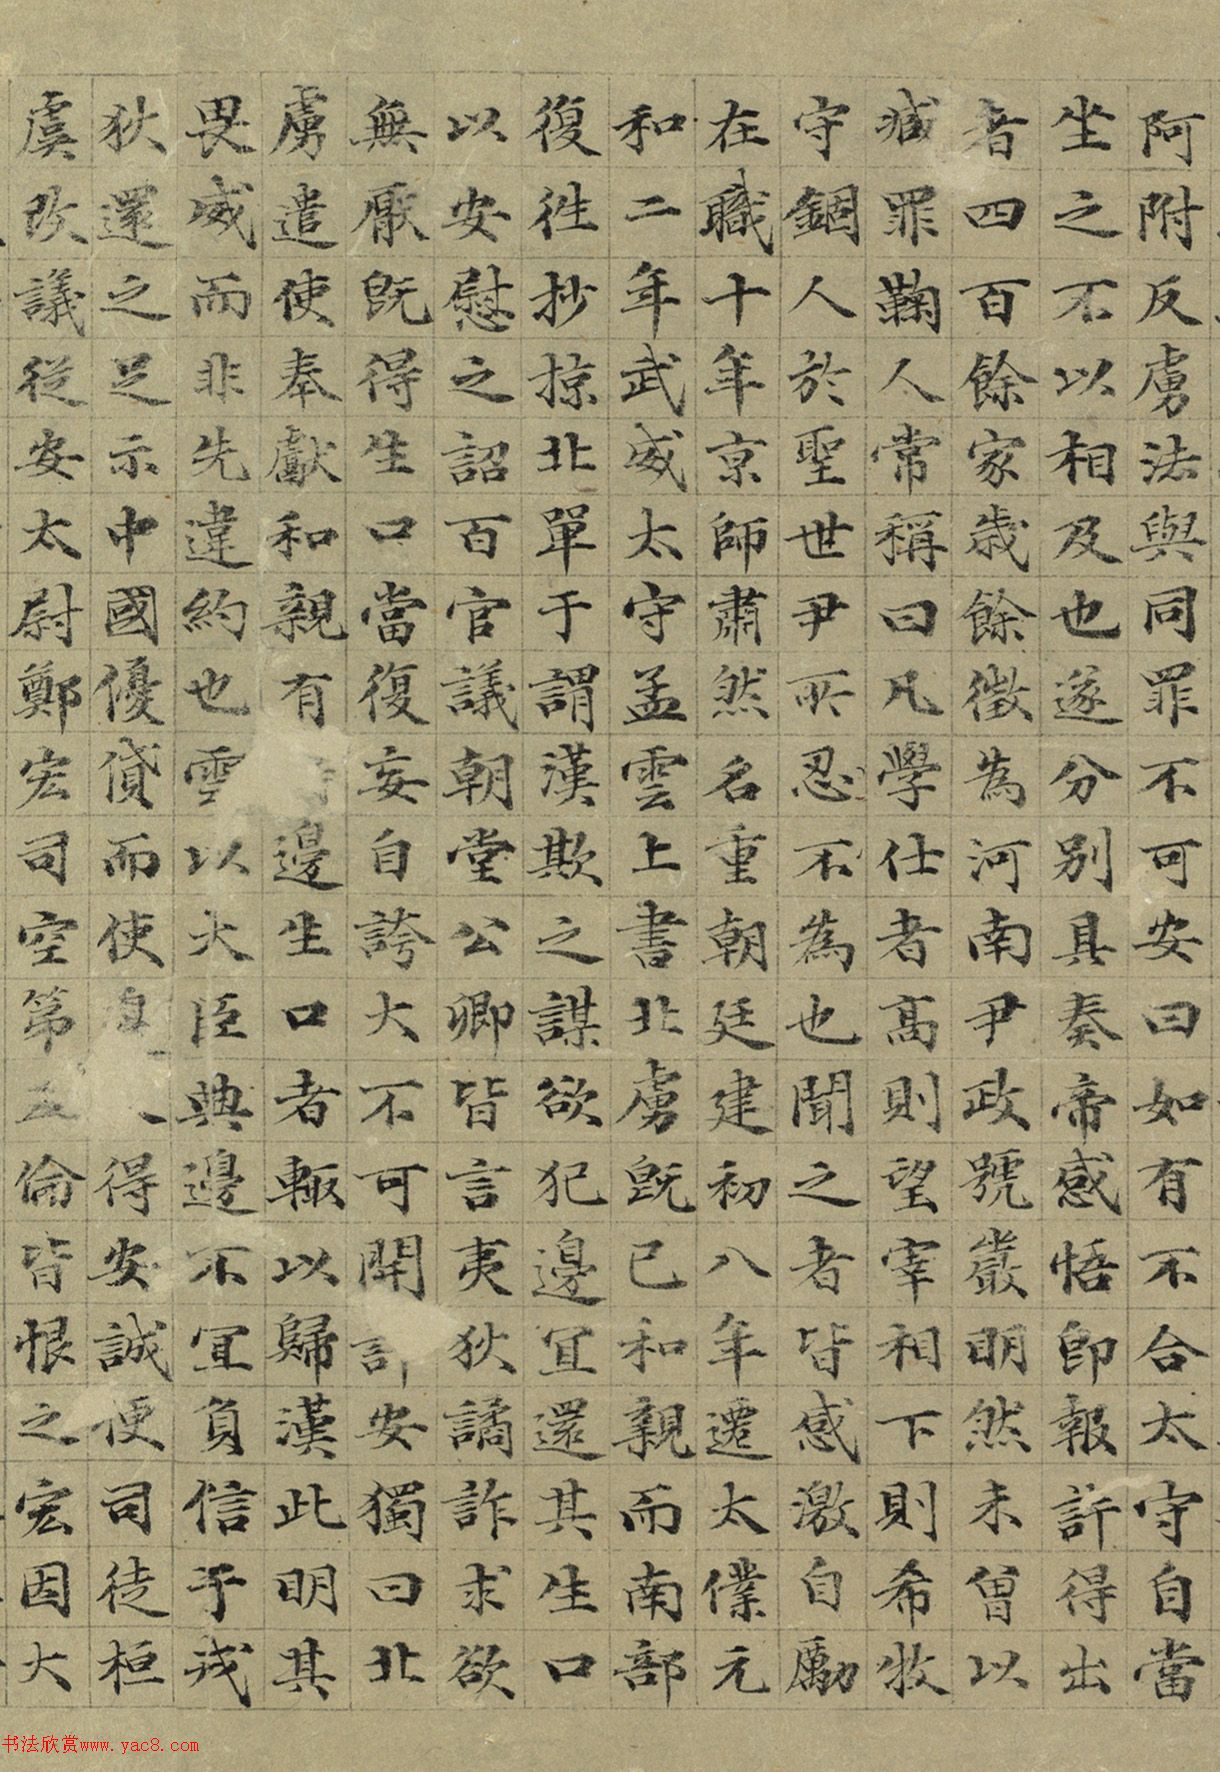 阿附反虜法與同罪不可安曰如有不合太守自當
坐之不以相及也遂分別具奏帝感悟即報許得出
者四百餘家歲餘徵為河南尹政號嚴明然未曾以
臧罪鞫人常稱曰凡學仕者高則望宰相下則希牧
守錮人於聖世尹所忍不為也聞之者皆感激自勵
在職十年京師肅然名重朝廷建初八年遷太僕元
和二年武威太守孟雲上書北虜既已和親而南部
復往抄掠北單于謂漢欺之謀欲犯邊宜還其生口
以安慰之詔百官議朝堂公卿皆言夷狄譎詐求欲
無厭既得生口當復妄自誇大不可開許安獨曰北
虜遣使奉獻和親有邊生口者輒以歸漢此明其
畏威而非先違約也雲以大臣典邊不宜負信于戎
狄還之足示中國優貸而使人得安誠便司徒桓
虞改議從安太尉鄭宏司空第五倫皆恨之宏因大
书法欣赏www.yac8.com